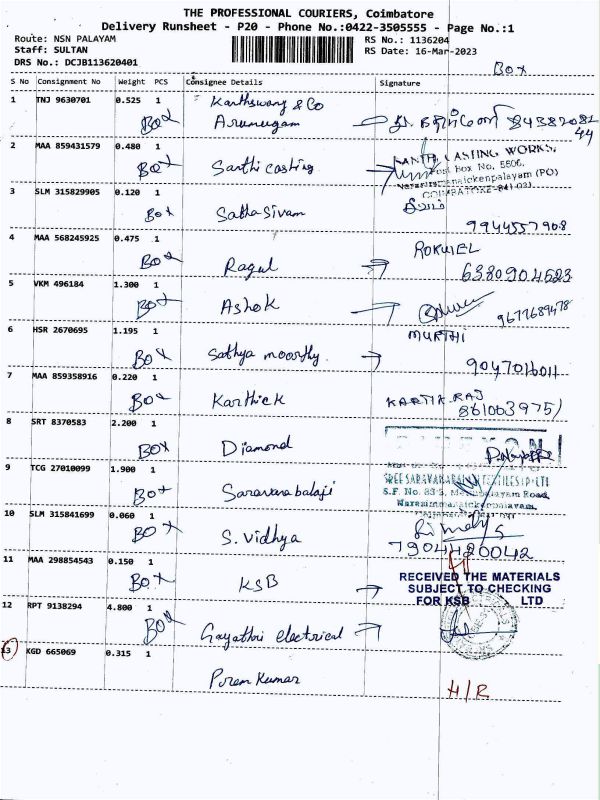 THE PROFESSIONAL COURIERS, Coimbatore
Delivery Runsheet - P20 - Phone No.:0422-3505555 - Page No.:1
Route: NSN PALAYAM
RS No.: 1136204
Staff: SULTAN
RS Date: 16-Mar-2023
DRS No.: DCJB113620401
Box
S No Consignment No Weight PCS Consignee Details Signature
1 TNJ 9630701 0.525 1 Karthswamy & Co
Box Arumugam
2 MAA 859431579 0.480 1
Box Santhi casting
CASTING WORKS,
Post Box No. 5806,
(PO)
3 SLM 315829905 0.120 1
Box Sathasivam
9944557908
4 MAA 568245925 0.475 1
Box Ragul
6380904523
5 VKM 496184 1.300 1
Box Ashok
9677689478
6 HSR 2670695 1.195 1 MURTHI
Box Sathya moorthy
9047016011
7 MAA 859358916 0.220 1
Box Karthick KARTIK RAJ
8610639751
8 SRT 8370583 2.200 1
Box Diamond
9 TCG 27010099 1.900 1
Box Saravanabalaji
S.F. No. 83/3, Mettupalayam Road,
10 SLM 315841699 0.060 1
Box S. Vidhya
7904420042
11 MAA 298854543 0.150 1
Box KSB
RECEIVED THE MATERIALS
SUBJECT TO CHECKING
FOR KSB LTD
12 RPT 9138294 4.800 1
Box Gayathri electrical
13 KGD 665069 0.315 1
Prem Kumar
H/R